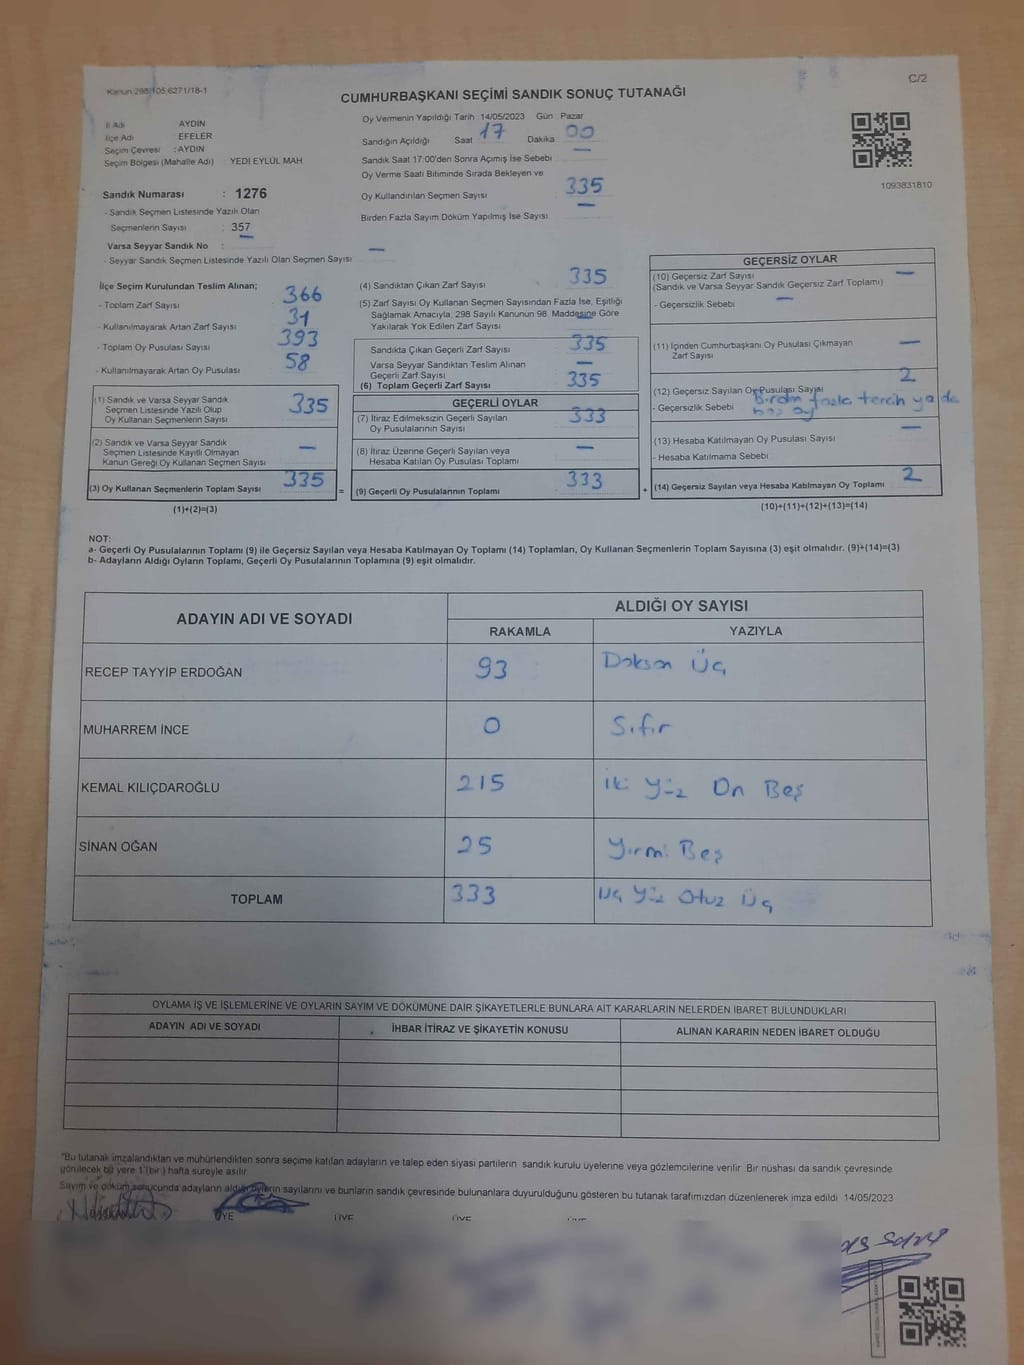 Kanun 298/105 6271/18-1
C/2
CUMHURBAŞKANI SEÇİMİ SANDIK SONUÇ TUTANAĞI
İl Adı AYDIN
İlçe Adı EFELER
Seçim Çevresi : AYDIN
Seçim Bölgesi (Mahalle Adı) YEDİ EYLÜL MAH
Sandık Numarası : 1276
- Sandık Seçmen Listesinde Yazılı Olan
Seçmenlerin Sayısı : 357
Varsa Seyyar Sandık No : —
- Seyyar Sandık Seçmen Listesinde Yazılı Olan Seçmen Sayısı —
Oy Vermenin Yapıldığı Tarih 14/05/2023 Gün : Pazar
Sandığın Açıldığı Saat 17 Dakika 00
Sandık Saat 17:00'den Sonra Açımış İse Sebebi —
Oy Verme Saati Bitiminde Sırada Bekleyen ve
Oy Kullandırılan Seçmen Sayısı 335
Birden Fazla Sayım Döküm Yapılmış İse Sayısı —
1093831810
İlçe Seçim Kurulundan Teslim Alınan;
- Toplam Zarf Sayısı 366
- Kullanılmayarak Artan Zarf Sayısı 31
- Toplam Oy Pusulası Sayısı 393
- Kullanılmayarak Artan Oy Pusulası 58
(1) Sandık ve Varsa Seyyar Sandık
Seçmen Listesinde Yazılı Olup
Oy Kullanan Seçmenlerin Sayısı 335
(2) Sandık ve Varsa Seyyar Sandık
Seçmen Listesinde Kayıtlı Olmayan
Kanun Gereği Oy Kullanan Seçmen Sayısı —
(3) Oy Kullanan Seçmenlerin Toplam Sayısı 335 =
(1)+(2)=(3)
(4) Sandıktan Çıkan Zarf Sayısı 335
(5) Zarf Sayısı Oy Kullanan Seçmen Sayısından Fazla İse, Eşitliği
Sağlamak Amacıyla, 298 Sayılı Kanunun 98. Maddesine Göre
Yakılarak Yok Edilen Zarf Sayısı —
Sandıkta Çıkan Geçerli Zarf Sayısı 335
Varsa Seyyar Sandıktan Teslim Alınan
Geçerli Zarf Sayısı —
(6) Toplam Geçerli Zarf Sayısı 335
GEÇERLİ OYLAR
(7) İtiraz Edilmeksizin Geçerli Sayılan
Oy Pusulalarının Sayısı 333
(8) İtiraz Üzerine Geçerli Sayılan veya
Hesaba Katılan Oy Pusulası Toplamı —
(9) Geçerli Oy Pusulalarının Toplamı 333 +
GEÇERSİZ OYLAR
(10) Geçersiz Zarf Sayısı —
(Sandık ve Varsa Seyyar Sandık Geçersiz Zarf Toplamı)
- Geçersizlik Sebebi —
(11) İçinden Cumhurbaşkanı Oy Pusulası Çıkmayan
Zarf Sayısı —
(12) Geçersiz Sayılan Oy Pusulası Sayısı 2
- Geçersizlik Sebebi Birden fazla tercih ya da
boş oy
(13) Hesaba Katılmayan Oy Pusulası Sayısı —
- Hesaba Katılmama Sebebi
(14) Geçersiz Sayılan veya Hesaba Katılmayan Oy Toplamı 2
(10)+(11)+(12)+(13)=(14)
NOT:
a- Geçerli Oy Pusulalarının Toplamı (9) ile Geçersiz Sayılan veya Hesaba Katılmayan Oy Toplamı (14) Toplamları, Oy Kullanan Seçmenlerin Toplam Sayısına (3) eşit olmalıdır. (9)+(14)=(3)
b- Adayların Aldığı Oyların Toplamı, Geçerli Oy Pusulalarının Toplamına (9) eşit olmalıdır.
ADAYIN ADI VE SOYADI ALDIĞI OY SAYISI
RAKAMLA YAZIYLA
RECEP TAYYİP ERDOĞAN 93 Doksan Üç
MUHARREM İNCE 0 Sıfır
KEMAL KILIÇDAROĞLU 215 İki Yüz On Beş
SİNAN OĞAN 25 Yirmi Beş
TOPLAM 333 Üç Yüz Otuz Üç
OYLAMA İŞ VE İŞLEMLERİNE VE OYLARIN SAYIM VE DÖKÜMÜNE DAİR ŞİKAYETLERLE BUNLARA AİT KARARLARIN NELERDEN İBARET BULUNDUKLARI
ADAYIN ADI VE SOYADI İHBAR İTİRAZ VE ŞİKAYETİN KONUSU ALINAN KARARIN NEDEN İBARET OLDUĞU
"Bu tutanak imzalandıktan ve mühürlendikten sonra seçime katılan adayların ve talep eden siyasi partilerin sandık kurulu üyelerine veya gözlemcilerine verilir. Bir nüshası da sandık çevresinde
görülecek bir yere 1 (bir) hafta süreyle asılır.
Sayım ve döküm sonucunda adayların aldığı oyların sayılarını ve bunların sandık çevresinde bulunanlara duyurulduğunu gösteren bu tutanak tarafımızdan düzenlenerek imza edildi 14/05/2023
ÜYE ÜYE ÜYE ÜYE